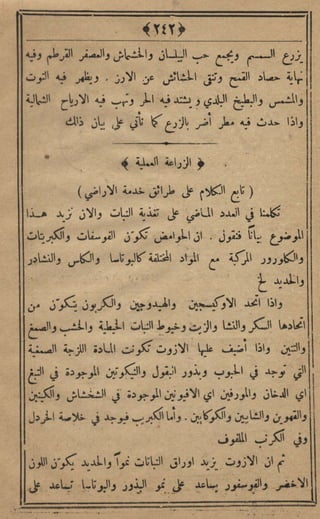 ﴿٢٤٢﴾
يزرع السمسم ويجمع حب البيلسان والخشخاش والعصفر القرطم وفيه
نهاية حصاد القمح وتنقى الحشائش عن الارز . ويظهر فيه التوت
والمشمس والبطيخ البلدي ويشتد فيه الحر وتهب فيه الارياح الشمالية
واذا حدث فيه مطر أضر بالزرع كما تأتي على بيان ذلك
﴿ الزراعة العملية ﴾
( تابع الكلام على طرائق خدمة الاراضي )
تكلمنا في العدد الماضي على تغذية النبات والان نزيد هذا
الموضوع بيانًا فنقول . ان الحوامض تكوّن الفوسفات والكبريتات
والكلورور المركبة مع المواد المختلفة كالبوتاسا والكلس والنشادر
والحديد لخ
واذا اتحد الاوكيسجين والهيدوجين والكربون يتكوّن من
اتحادها السكر والنشا والزيت وخيوط النبات الخيطية والخشب والصمغ
والتنين واذا أضيف عليها الازوت تكونت المادة اللزجة الصمغية
التي توجد في الحبوب وبذور البقول والنيكوتين الموجودة في التبغ
اي الدخان والمورفين اي الافيونين الموجودة في الخشخاش والكينين
والقهوين والشايين والكوكايين . وأما الكبريت فيوجد في خلاصة الخردل
وفي الكرنب الملفوف
ثم ان الازوت يزيد اوراق النباتات نموًا والحديد يكوّن اللون
الاخضر والفوسفور يساعد على نمو البذور والبوتاسا تساعد على